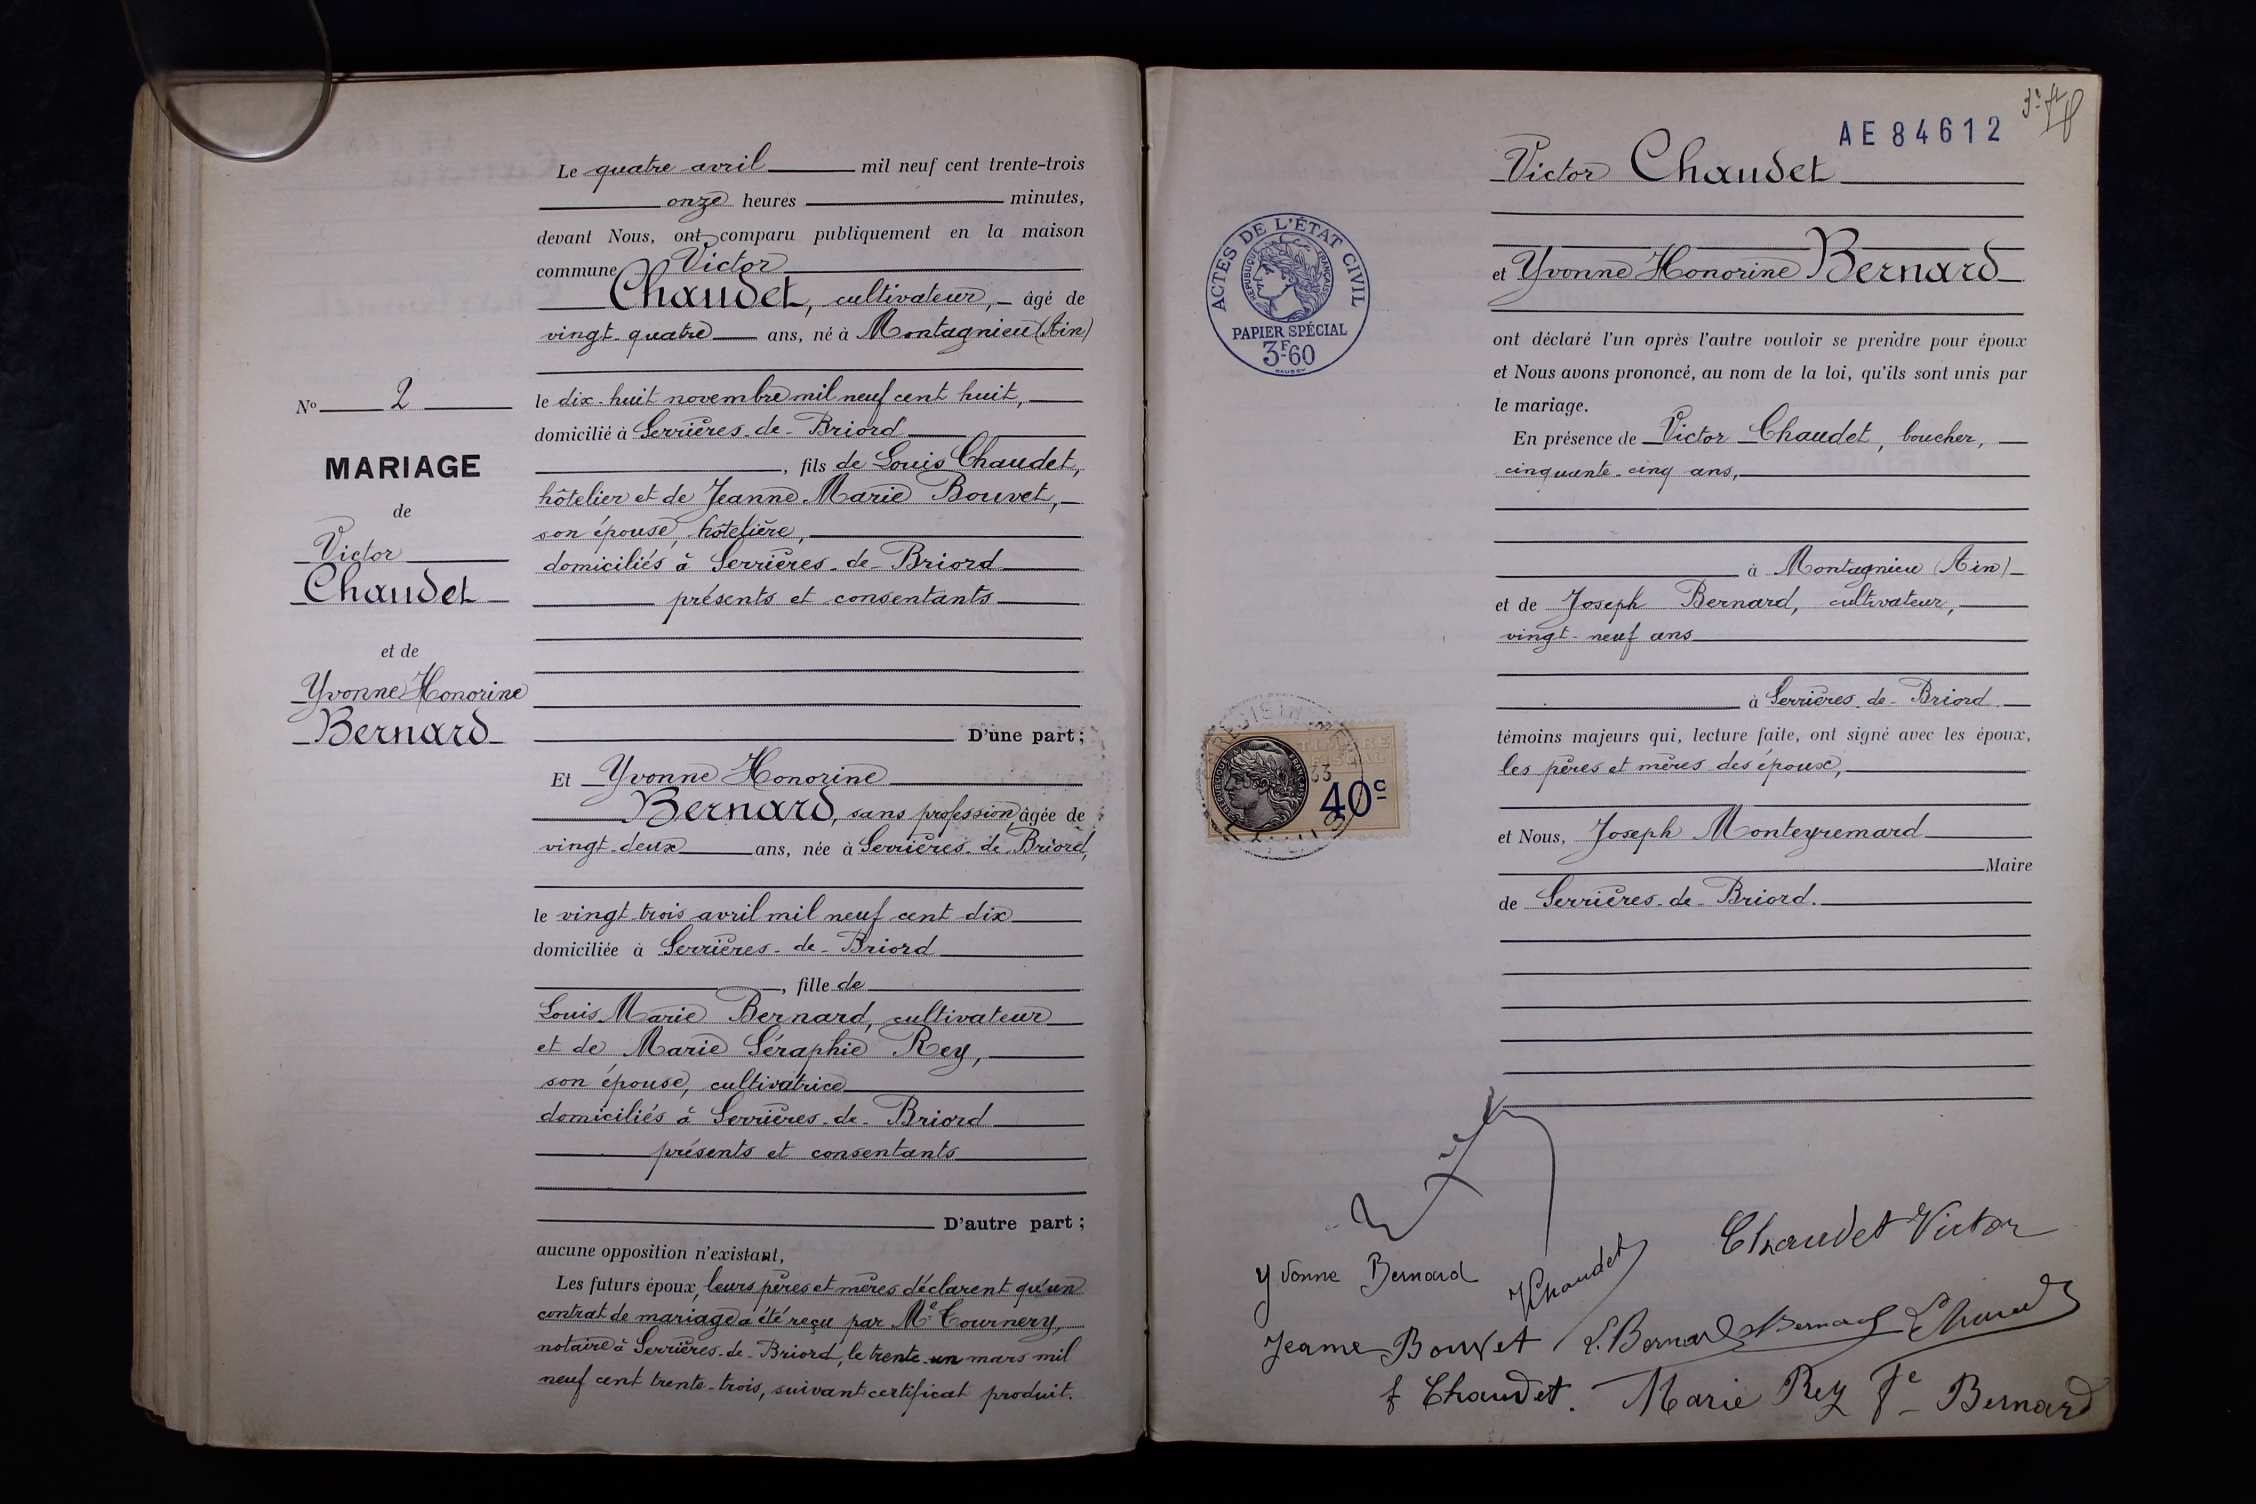 Le quatre avril mil neuf cent trente-trois
onze heures minutes,
devant Nous, ont comparu publiquement en la maison
commune Victor
Chaudet, cultivateur, âgé de
vingt-quatre ans, né à Montagnieu (Ain)
le dix-huit novembre mil neuf cent huit,
domicilié à Serrières-de-Briord
, fils de Louis Chaudet,
hôtelier et de Jeanne Marie Bouvet,
son épouse, hôtelière,
domiciliés à Serrières-de-Briord
présents et consentants
D'une part;
Et Yvonne Honorine
Bernard, sans profession, âgée de
vingt-deux ans, née à Serrières-de-Briord,
le vingt-trois avril mil neuf cent dix
domiciliée à Serrières-de-Briord
, fille de
Louis Marie Bernard, cultivateur
et de Marie Séraphie Rey,
son épouse, cultivatrice
domiciliés à Serrières-de-Briord
présents et consentants
D'autre part;
aucune opposition n'existant,
Les futurs époux, leurs pères et mères déclarent qu'un
contrat de mariage a été reçu par Me Tournery,
notaire à Serrières-de-Briord, le trente-un mars mil
neuf cent trente-trois, suivant certificat produit.
No 2
MARIAGE
de
Victor
Chaudet
et de
Yvonne Honorine
Bernard
AE 84612
Victor Chaudet
et Yvonne Honorine Bernard
ont déclaré l'un après l'autre vouloir se prendre pour époux
et Nous avons prononcé, au nom de la loi, qu'ils sont unis par
le mariage.
En présence de Victor Chaudet, boucher,
cinquante-cinq ans,
à Montagnieu (Ain)
et de Joseph Bernard, cultivateur,
vingt-neuf ans
à Serrières-de-Briord
témoins majeurs qui, lecture faite, ont signé avec les époux,
les pères et mères des époux,
et Nous, Joseph Monteyremard
Maire
de Serrières-de-Briord.
ACTES DE L'ÉTAT CIVIL
RÉPUBLIQUE FRANÇAISE
PAPIER SPÉCIAL
3F60
TIMBRE
FISCAL
33
40c
Chaudet Victor
Yvonne Bernard
VChaudet
Jeanne Bouvet
L. Bernard
f Chaudet.
Marie Rey Fe Bernard